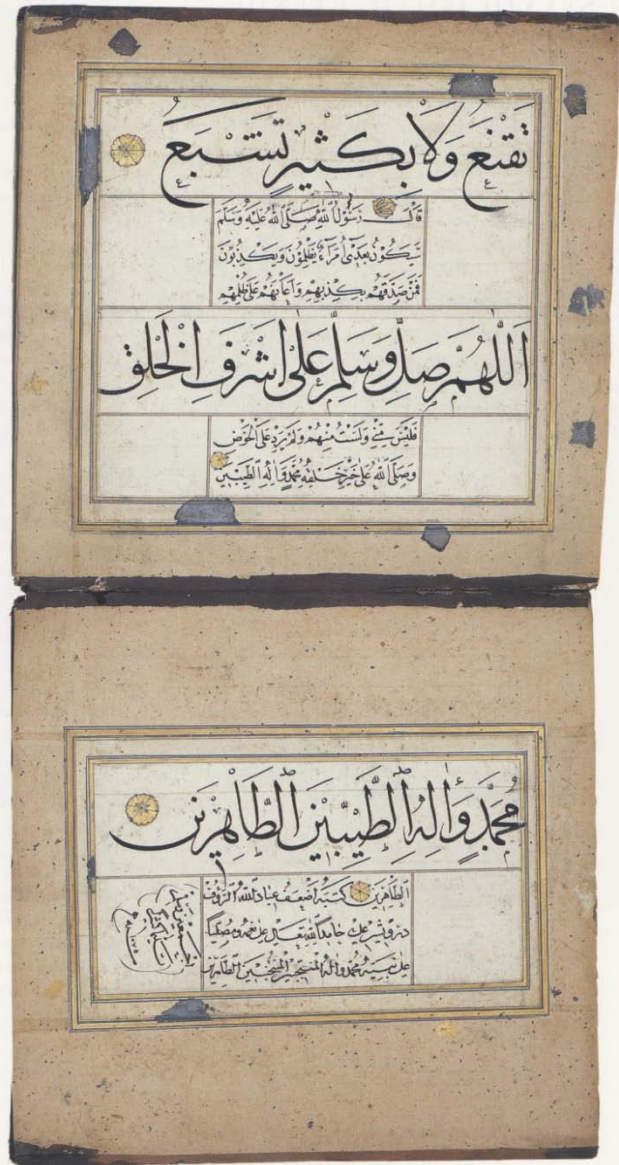 تَقْنَعُ وَلَا بِكَثِيرٍ تَشْبَعُ
قَالَ رَسُولُ اللّٰهِ صَلَّى اللّٰهُ عَلَيْهِ وَسَلَّمَ
سَيَكُونُ بَعْدِي أُمَرَاءُ يَظْلِمُونَ وَيَكْذِبُونَ
فَمَنْ صَدَّقَهُمْ بِكِذْبِهِمْ وَأَعَانَهُمْ عَلَى ظُلْمِهِمْ
اَللّٰهُمَّ صَلِّ وَسَلِّمْ عَلٰى اَشْرَفِ الْخَلْقِ
فَلَيْسَ مِنِّي وَلَسْتُ مِنْهُمْ وَلَمْ يَرِدْ عَلَى الْحَوْضِ
وَصَلَّى اللّٰهُ عَلَى خَيْرِ خَلْقِهِ مُحَمَّدٍ وَاٰلِهِ الطَّيِّبِينَ
مُحَمَّدٍ وَاٰلِهِ الطَّيِّبِينَ الطَّاهِرِينَ
الطَّاهِرِينَ كَتَبَهُ أَضْعَفُ عِبَادِ اللّٰهِ الرَّؤُوفِ
درويش علي حامداً لله تعالى على نعمه ومصلياً
على نبيه محمد وآله الطاهرين